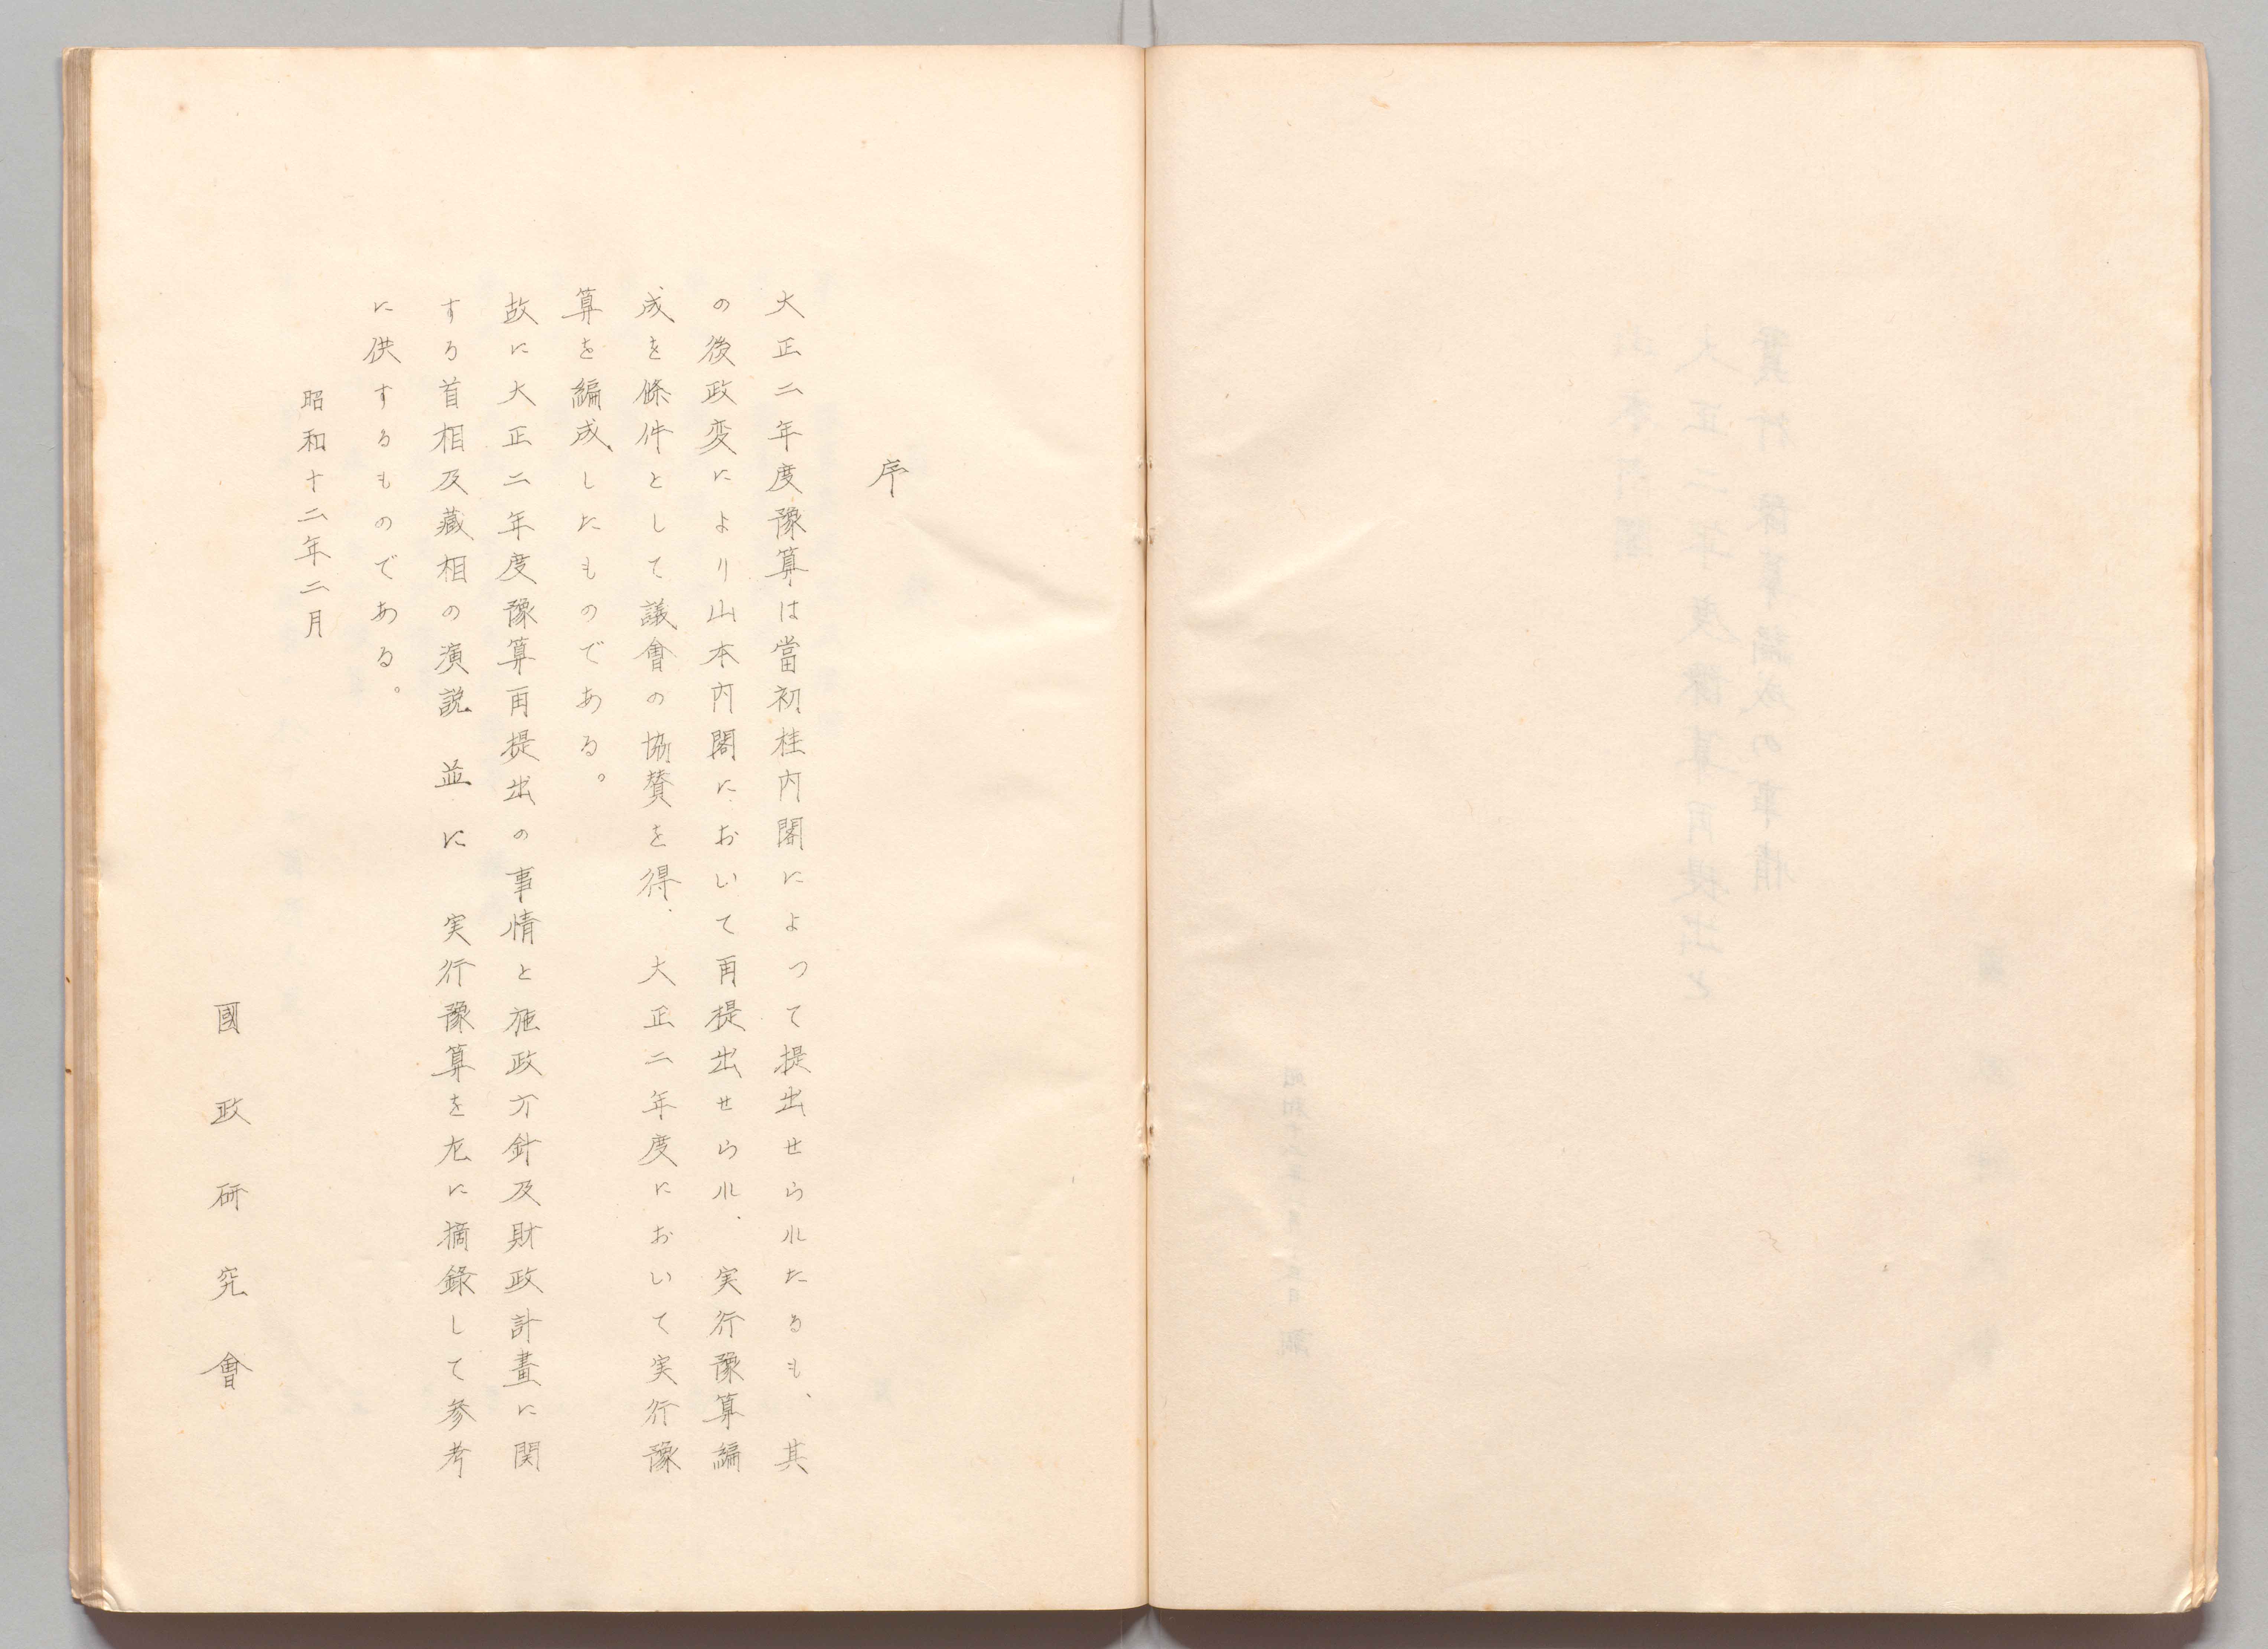 序
大正二年度豫算は當初桂内閣によつて提出せられたるも、其
の後政変により山本内閣において再提出せられ、実行豫算編
成を條件として議會の協賛を得、大正二年度において実行豫
算を編成したものである。
故に大正二年度豫算再提出の事情と施政方針及財政計畫に関
する首相及藏相の演説並に実行豫算を左に摘錄して参考
に供するものである。
昭和十二年二月
國政研究會